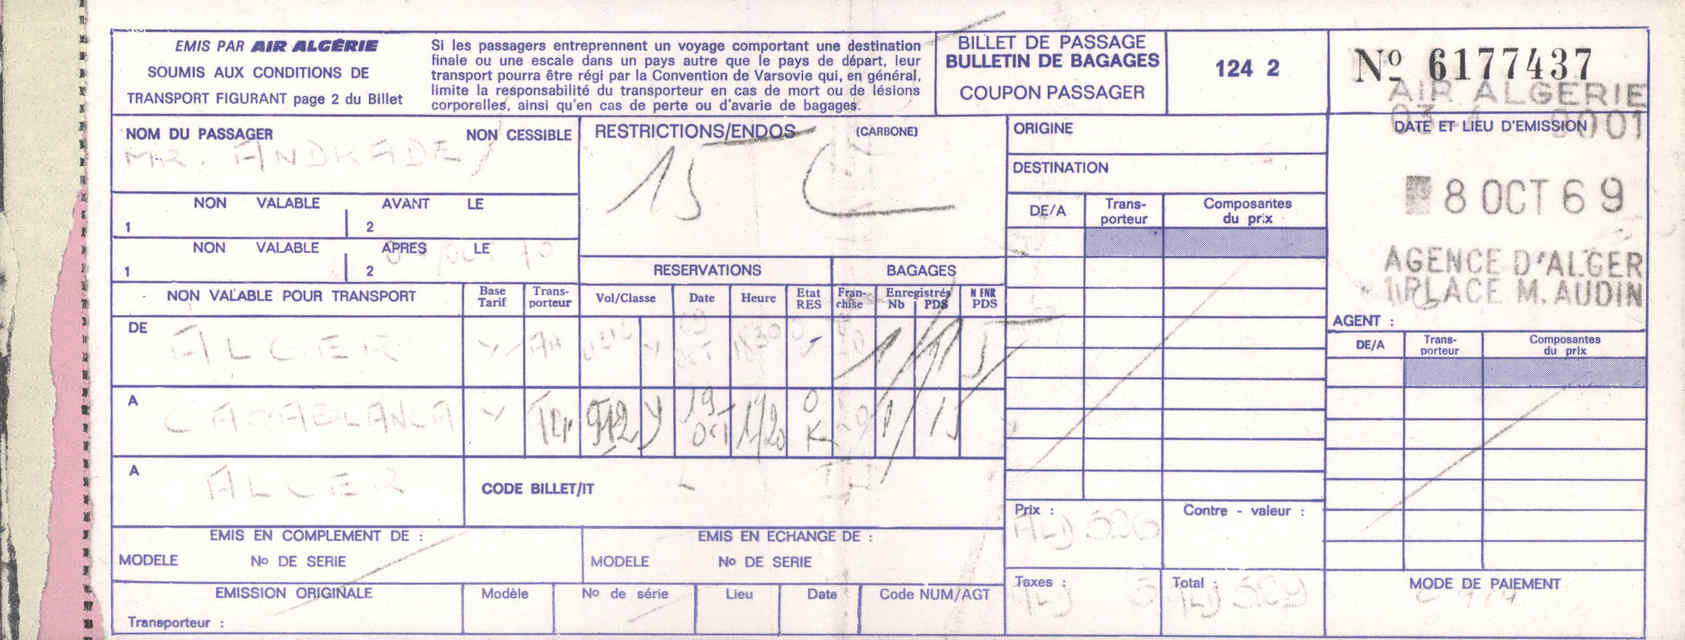 EMIS PAR AIR ALGÉRIE
SOUMIS AUX CONDITIONS DE
TRANSPORT FIGURANT page 2 du Billet
Si les passagers entreprennent un voyage comportant une destination
finale ou une escale dans un pays autre que le pays de départ, leur
transport pourra être régi par la Convention de Varsovie qui, en général,
limite la responsabilité du transporteur en cas de mort ou de lésions
corporelles, ainsi qu'en cas de perte ou d'avarie de bagages.
BILLET DE PASSAGE
BULLETIN DE BAGAGES
COUPON PASSAGER
124 2
No 6177437
AIR ALGERIE
DATE ET LIEU D'EMISSION
8 OCT 69
AGENCE D'ALGER
PLACE M. AUDIN
AGENT :
NOM DU PASSAGER NON CESSIBLE
MR. ANDRADE
RESTRICTIONS/ENDOS (CARBONE)
15
ORIGINE
DESTINATION
NON VALABLE AVANT LE
1 2
NON VALABLE APRES LE
1 2
DE/A Trans-porteur Composantes du prix
RESERVATIONS BAGAGES
NON VALABLE POUR TRANSPORT Base Tarif Trans-porteur Vol/Classe Date Heure Etat RES Fran-chise Enregistrés Nb PDS N ENR PDS
DE ALGER Y AH Y 09 OCT 1830 20 1 15
A CASABLANCA Y 912 Y 19 OCT OK 20 1 15
A ALGER
CODE BILLET/IT
DE/A Trans-porteur Composantes du prix
EMIS EN COMPLEMENT DE :
MODELE No DE SERIE
EMIS EN ECHANGE DE :
MODELE No DE SERIE
Prix :
Contre - valeur :
EMISSION ORIGINALE Modèle No de série Lieu Date Code NUM/AGT
Transporteur :
Taxes :
Total :
MODE DE PAIEMENT